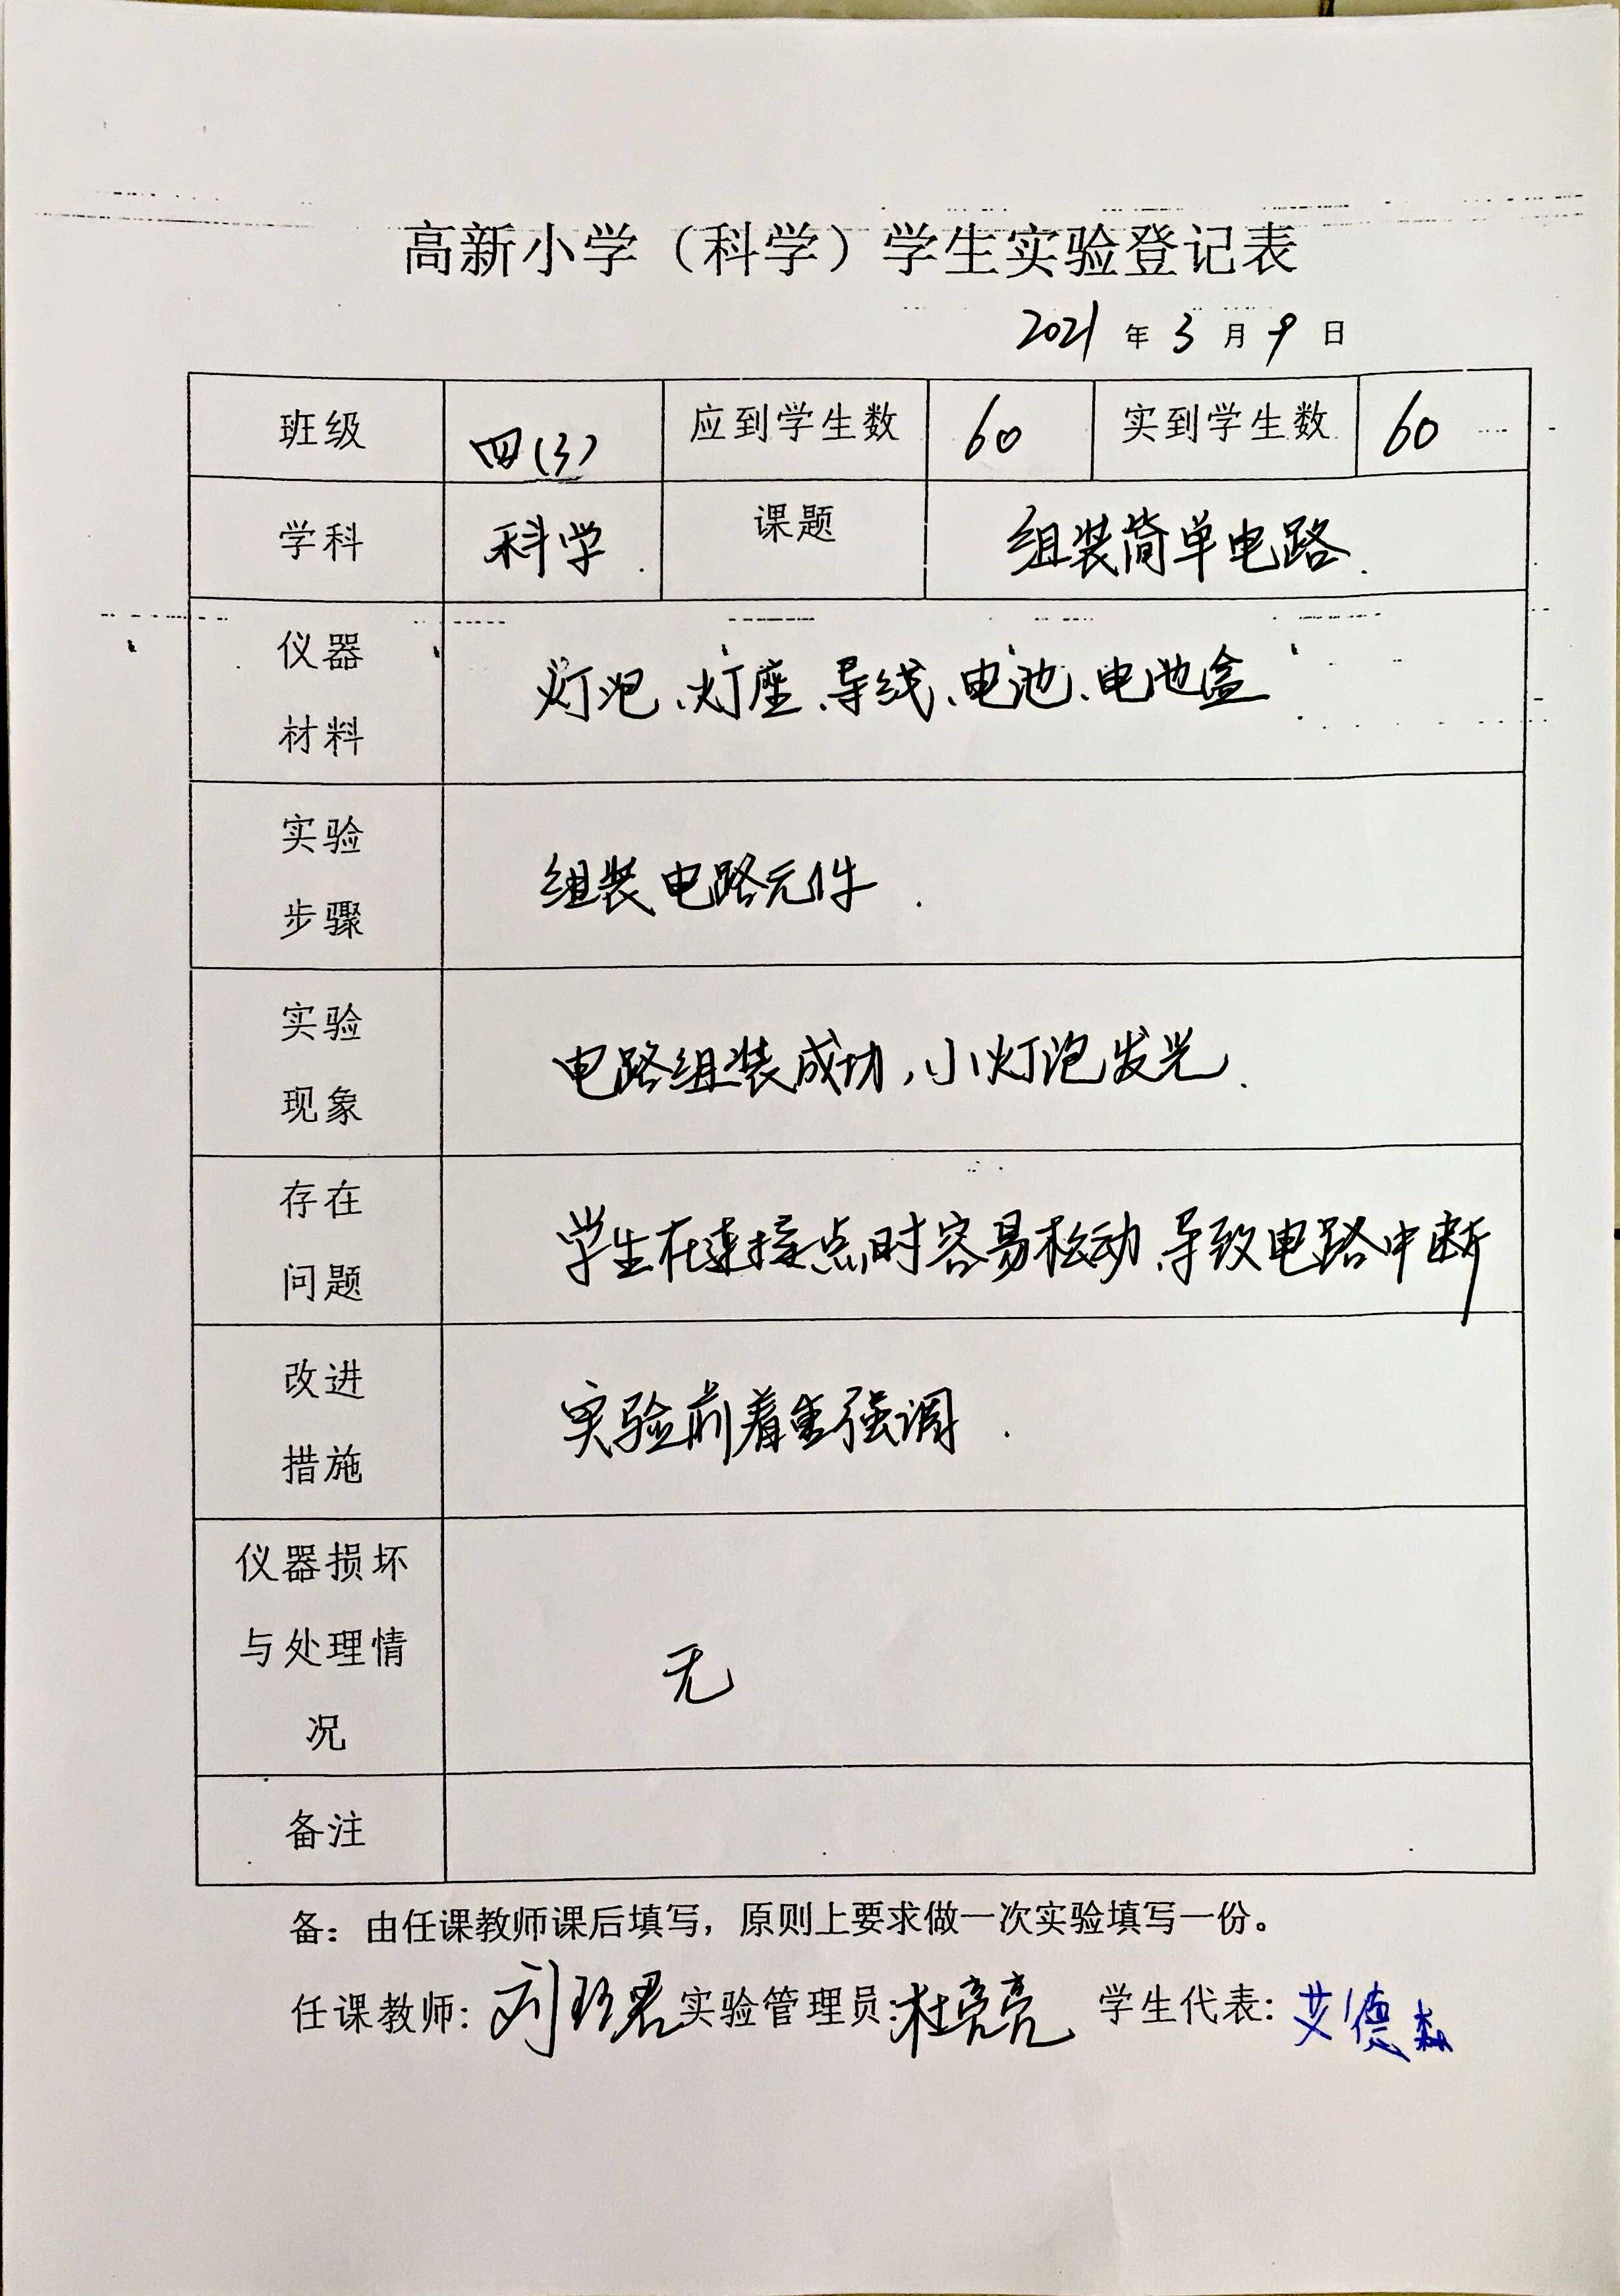 高新小学（科学）学生实验登记表
2021 年 3 月 9 日
班级 四(3) 应到学生数 60 实到学生数 60
学科 科学 课题 组装简单电路.
仪器
材料
灯泡、灯座、导线、电池、电池盒
实验
步骤
组装电路元件.
实验
现象
电路组装成功,小灯泡发光.
存在
问题
学生在连接点时容易松动、导致电路中断
改进
措施
实验前着重强调.
仪器损坏
与处理情
况
无
备注
备：由任课教师课后填写，原则上要求做一次实验填写一份。
任课教师: 刘 君 实验管理员: 杜亮亮 学生代表: 艾德森